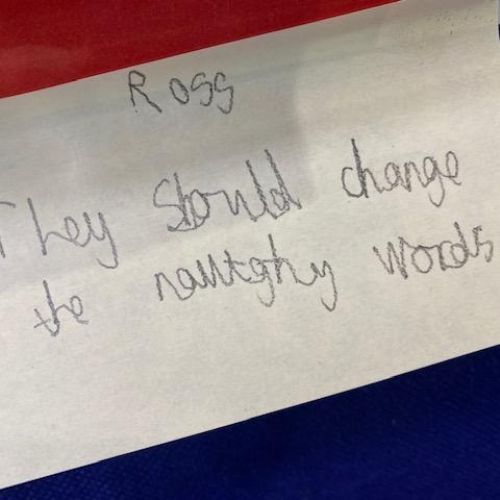 Ross
They should change
the naukghy words